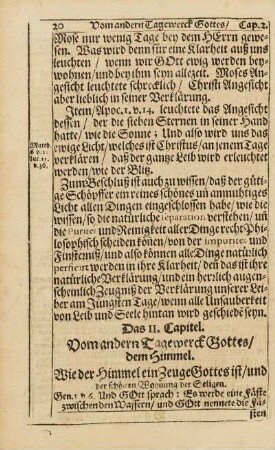 20 Vom andern Tagewerck Gottes / Cap. 2.
Mose nur wenig Tage bey dem HErrn gewe-
sen. Was wird denn für eine Klarheit auß uns
leuchten / wenn wir GOtt ewig werden bey-
wohnen / und bey ihm seyn allezeit. Moses An-
gesicht leuchtete schrecklich / Christi Angesicht
aber lieblich in seiner Verklärung.
Item / Apoc. 1. v. 14. leuchtet das Angesicht
dessen / der die sieben Sternen in seiner Hand
hatte / wie die Sonne: Und also wird uns das
Matth.
ewige Licht / welches ist Christus / an jenem Tage
verklären / daß der gantze Leib wird erleuchtet
v. 36.
werden / wie der Blitz.
Zum Beschluß ist auch zu wissen / daß der güti-
ge Schöpffer ein reines schönes uñ anmuhtiges
Licht allen Dingen eingeschlossen habe / wie die
wissen / so die natürliche separation verstehen / uñ
die Puritet und Reinigkeit aller Dinge recht Phi-
losophisch scheiden köñen / von der impuritet und
Finsterniß / und also können alle Dinge natürlich
perficirt werden in ihre Klarheit / deñ das ist ihre
natürliche Verklärung / und ein herrlich augen-
scheinlich Zeugniß der Verklärung unserer Lei-
ber am Jüngsten Tage / wenn alle Unsauberkeit
von Leib und Seele hintan wird geschiedē seyn.
Das II. Capitel.
Vom andern Tagewerck Gottes /
dem Himmel.
Wie der Himmel ein Zeuge Gottes ist / und
der schönen Wohnung der Seligen.
Gen. 1. v. 6. Und GOtt sprach: Es werde eine Fäste
zwischen den Wassern / und GOtt nennete die Fä-
sten